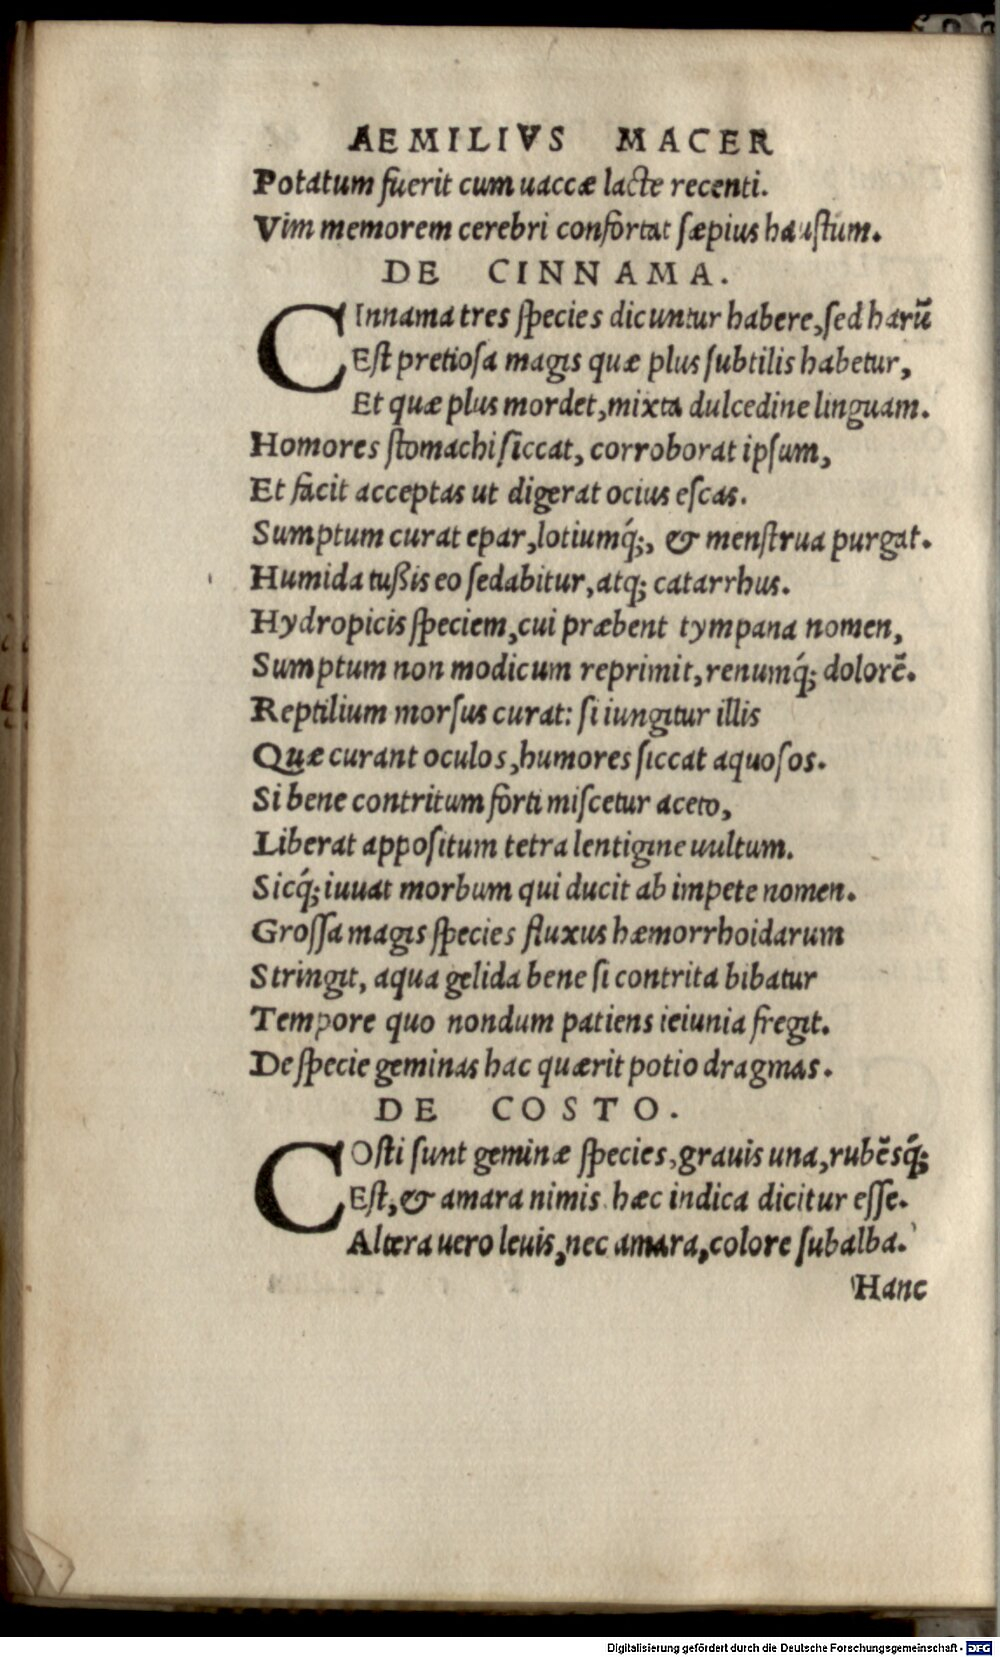 AEMILIVS MACER
Potatum fuerit cum uaccæ lacte recenti.
Vim memorem cerebri confortat sæpius haustum.
DE CINNAMA.
CInnama tres species dicuntur habere, sed harū
Est pretiosa magis quæ plus subtilis habetur,
Et quæ plus mordet, mixta dulcedine linguam.
Homores stomachi siccat, corroborat ipsum,
Et facit acceptas ut digerat ocius escas.
Sumptum curat epar, lotiumq́;, & menstrua purgat.
Humida tußis eo sedabitur, atq; catarrhus.
Hydropicis speciem, cui præbent tympana nomen,
Sumptum non modicum reprimit, renumq́; dolorē.
Reptilium morsus curat: si iungitur illis
Quæ curant oculos, humores siccat aquosos.
Si bene contritum forti miscetur aceto,
Liberat appositum tetra lentigine uultum.
Sicq́; iuuat morbum qui ducit ab impete nomen.
Grossa magis species fluxus hæmorrhoidarum
Stringit, aqua gelida bene si contrita bibatur
Tempore quo nondum patiens ieiunia fregit.
De specie geminas hac quærit potio dragmas.
DE COSTO.
COsti sunt geminæ species, grauis una, rubēsq́;
Est, & amara nimis hæc indica dicitur esse.
Altera uero leuis, nec amara, colore subalba.
Hanc
Digitalisierung gefördert durch die Deutsche Forschungsgemeinschaft - DFG